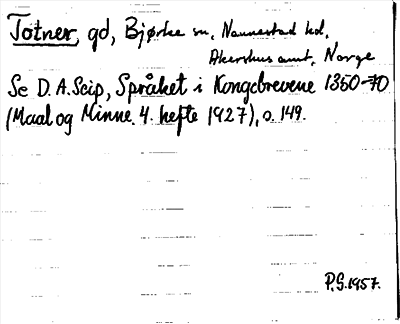 Totner, gd, Bjørke sn, Nannestad hd,
Akershus amt, Norge
Se D. A. Seip, Språket i Kongebrevene 1350-70
(Maal og Minne. 4. hefte 1927), o. 149.
P.S. 1957.